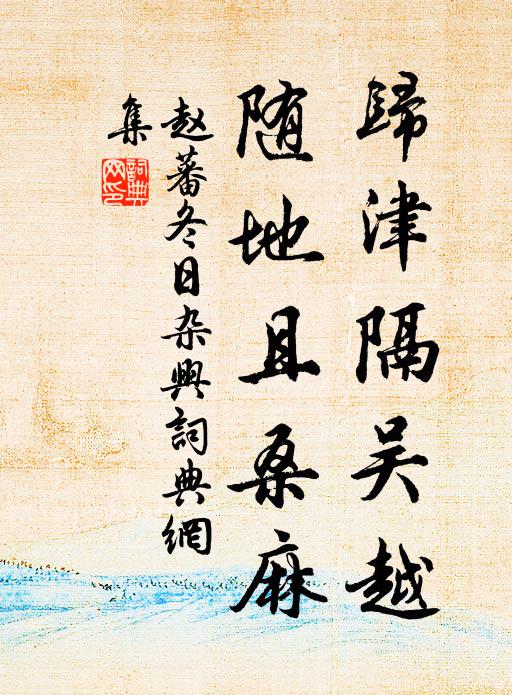 歸津隔吴越
随地且桑麻
赵蕃冬日杂興詞典網
集
詞典網印